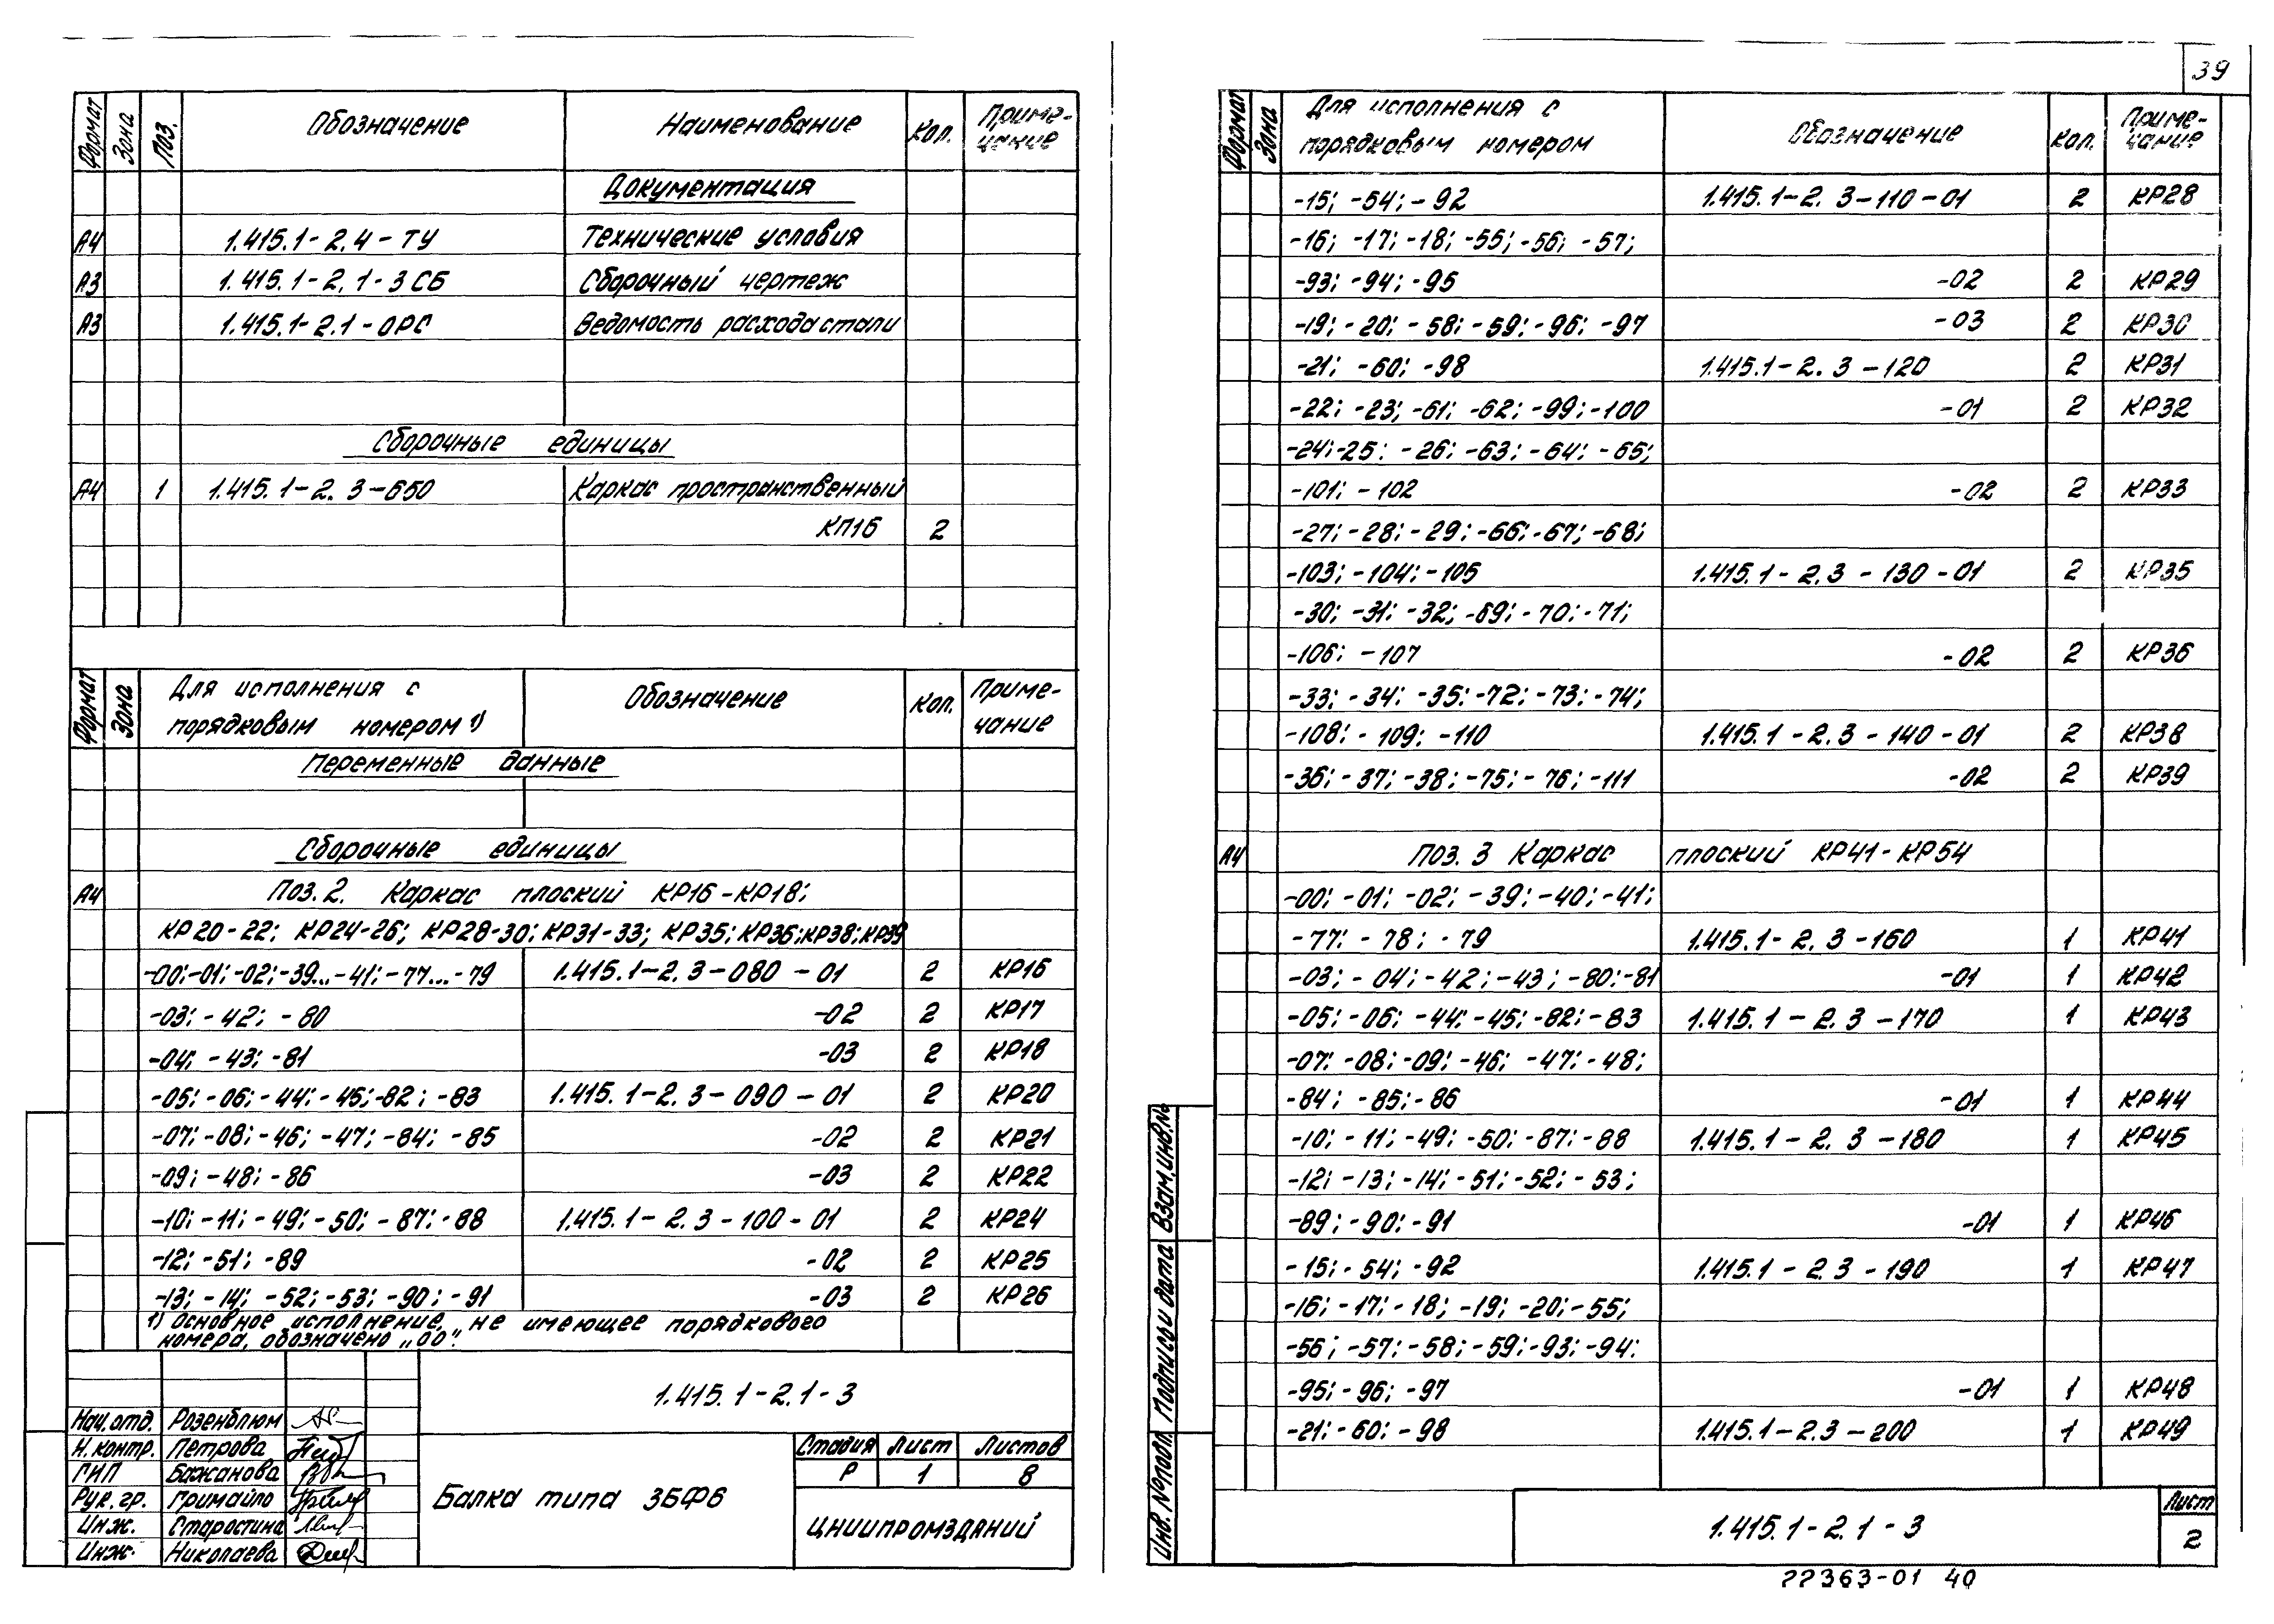 Формат Зона Поз. Обозначение Наименование Кол. Примечание
Документация
А4 1.415.1-2.4-ТУ Технические условия
А3 1.415.1-2.1-3СБ Сборочный чертеж
А3 1.415.1-2.1-0РС Ведомость расхода стали
Сборочные единицы
А4 1 1.415.1-2.3-650 Каркас пространственный
КП16 2
Формат Зона Для исполнения с порядковым номером 1) Обозначение Кол. Приме-чание
Переменные данные
Сборочные единицы
А4 Поз. 2. Каркас плоский КР16-КР18;
КР20-22; КР24-26; КР28-30; КР31-33; КР35; КР36; КР38; КР39
-00; -01; -02; -39...-41; -77...-79 1.415.1-2.3-080-01 2 КР16
-03; -42; -80 -02 2 КР17
-04; -43; -81 -03 2 КР18
-05; -06; -44; -45; -82; -83 1.415.1-2.3-090-01 2 КР20
-07; -08; -46; -47; -84; -85 -02 2 КР21
-09; -48; -86 -03 2 КР22
-10; -11; -49; -50; -87; -88 1.415.1-2.3-100-01 2 КР24
-12; -51; -89 -02 2 КР25
-13; -14; -52; -53; -90; -91 -03 2 КР26
1) Основное исполнение, не имеющее порядкового
номера, обозначено „00".
1.415.1-2.1-3
Нач. отд. Розенблюм
Н. контр. Петрова
ГИП Бажанова
Рук. гр. Гримайло
Инж. Старостина
Инж. Николаева
Балка типа 3БФ6
Стадия Лист Листов
Р 1 8
ЦНИИПРОМЗДАНИЙ
39
Формат Зона Для исполнения с порядковым номером Обозначение Кол. Приме-чание
-15; -54; -92 1.415.1-2.3-110-01 2 КР28
-16; -17; -18; -55; -56; -57;
-93; -94; -95 -02 2 КР29
-19; -20; -58; -59; -96; -97 -03 2 КР30
-21; -60; -98 1.415.1-2.3-120 2 КР31
-22; -23; -61; -62; -99; -100 -01 2 КР32
-24; -25; -26; -63; -64; -65;
-101; -102 -02 2 КР33
-27; -28; -29; -66; -67; -68;
-103; -104; -105 1.415.1-2.3-130-01 2 КР35
-30; -31; -32; -69; -70; -71;
-106; -107 -02 2 КР36
-33; -34; -35; -72; -73; -74;
-108; -109; -110 1.415.1-2.3-140-01 2 КР38
-36; -37; -38; -75; -76; -111 -02 2 КР39
А4 Поз. 3 Каркас плоский КР41-КР54
-00; -01; -02; -39; -40; -41;
-77; -78; -79 1.415.1-2.3-160 1 КР41
-03; -04; -42; -43; -80; -81 -01 1 КР42
-05; -06; -44; -45; -82; -83 1.415.1-2.3-170 1 КР43
-07; -08; -09; -46; -47; -48;
-84; -85; -86 -01 1 КР44
-10; -11; -49; -50; -87; -88 1.415.1-2.3-180 1 КР45
-12; -13; -14; -51; -52; -53;
-89; -90; -91 -01 1 КР46
-15; -54; -92 1.415.1-2.3-190 1 КР47
-16; -17; -18; -19; -20; -55;
-56; -57; -58; -59; -93; -94;
-95; -96; -97 -01 1 КР48
-21; -60; -98 1.415.1-2.3-200 1 КР49
Инв. № подл. Подпись и дата Взам. инв. №
1.415.1-2.1-3
Лист
2
22363-01 40